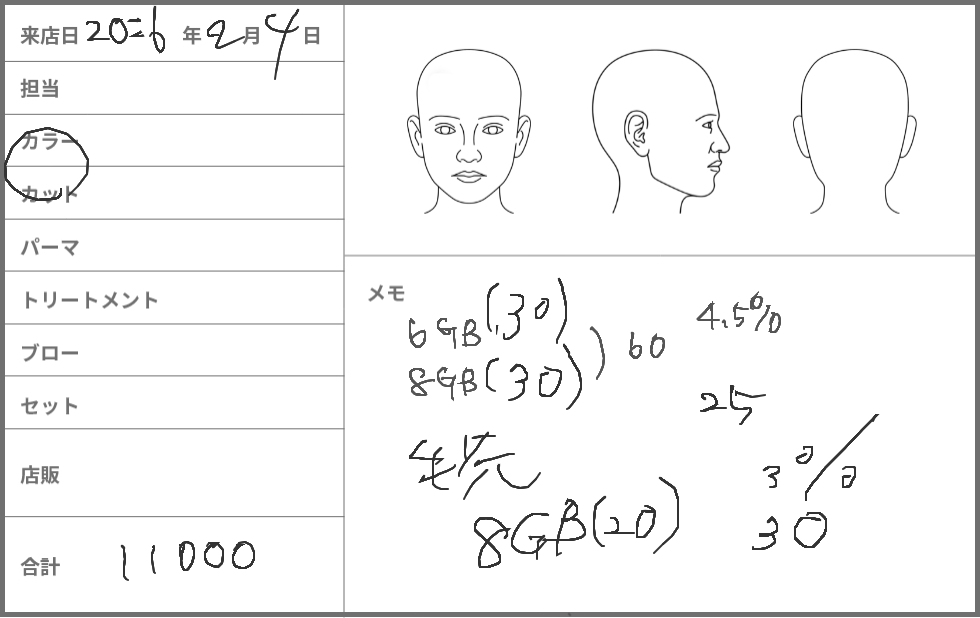 来店日 2026 年 2 月 4 日
担当
カラー
カット
パーマ
トリートメント
ブロー
セット
店販
合計 11000
メモ
6GB(30)
8GB(30) ) 60
4.5%
25
毛先
8GB(20)
3%
30